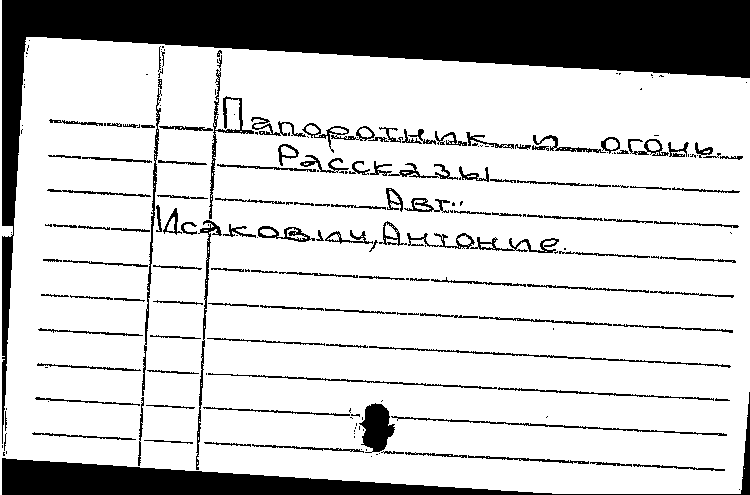 Папоротник и огонь.
Рассказы
Авт.:
Исакович, Антоние.